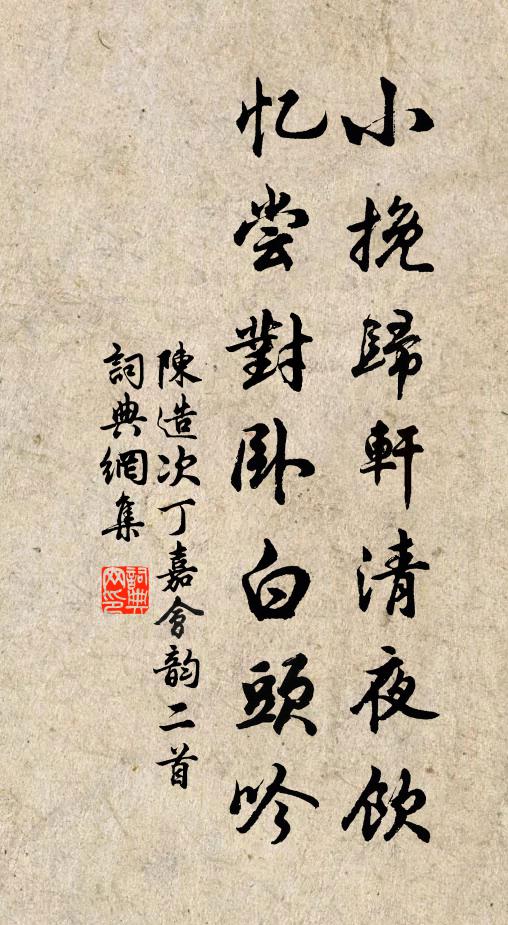 小挽歸軒清夜飲
忆尝對卧白頭吟
陳造次丁嘉會韵二首
詞典網集
詞典網印